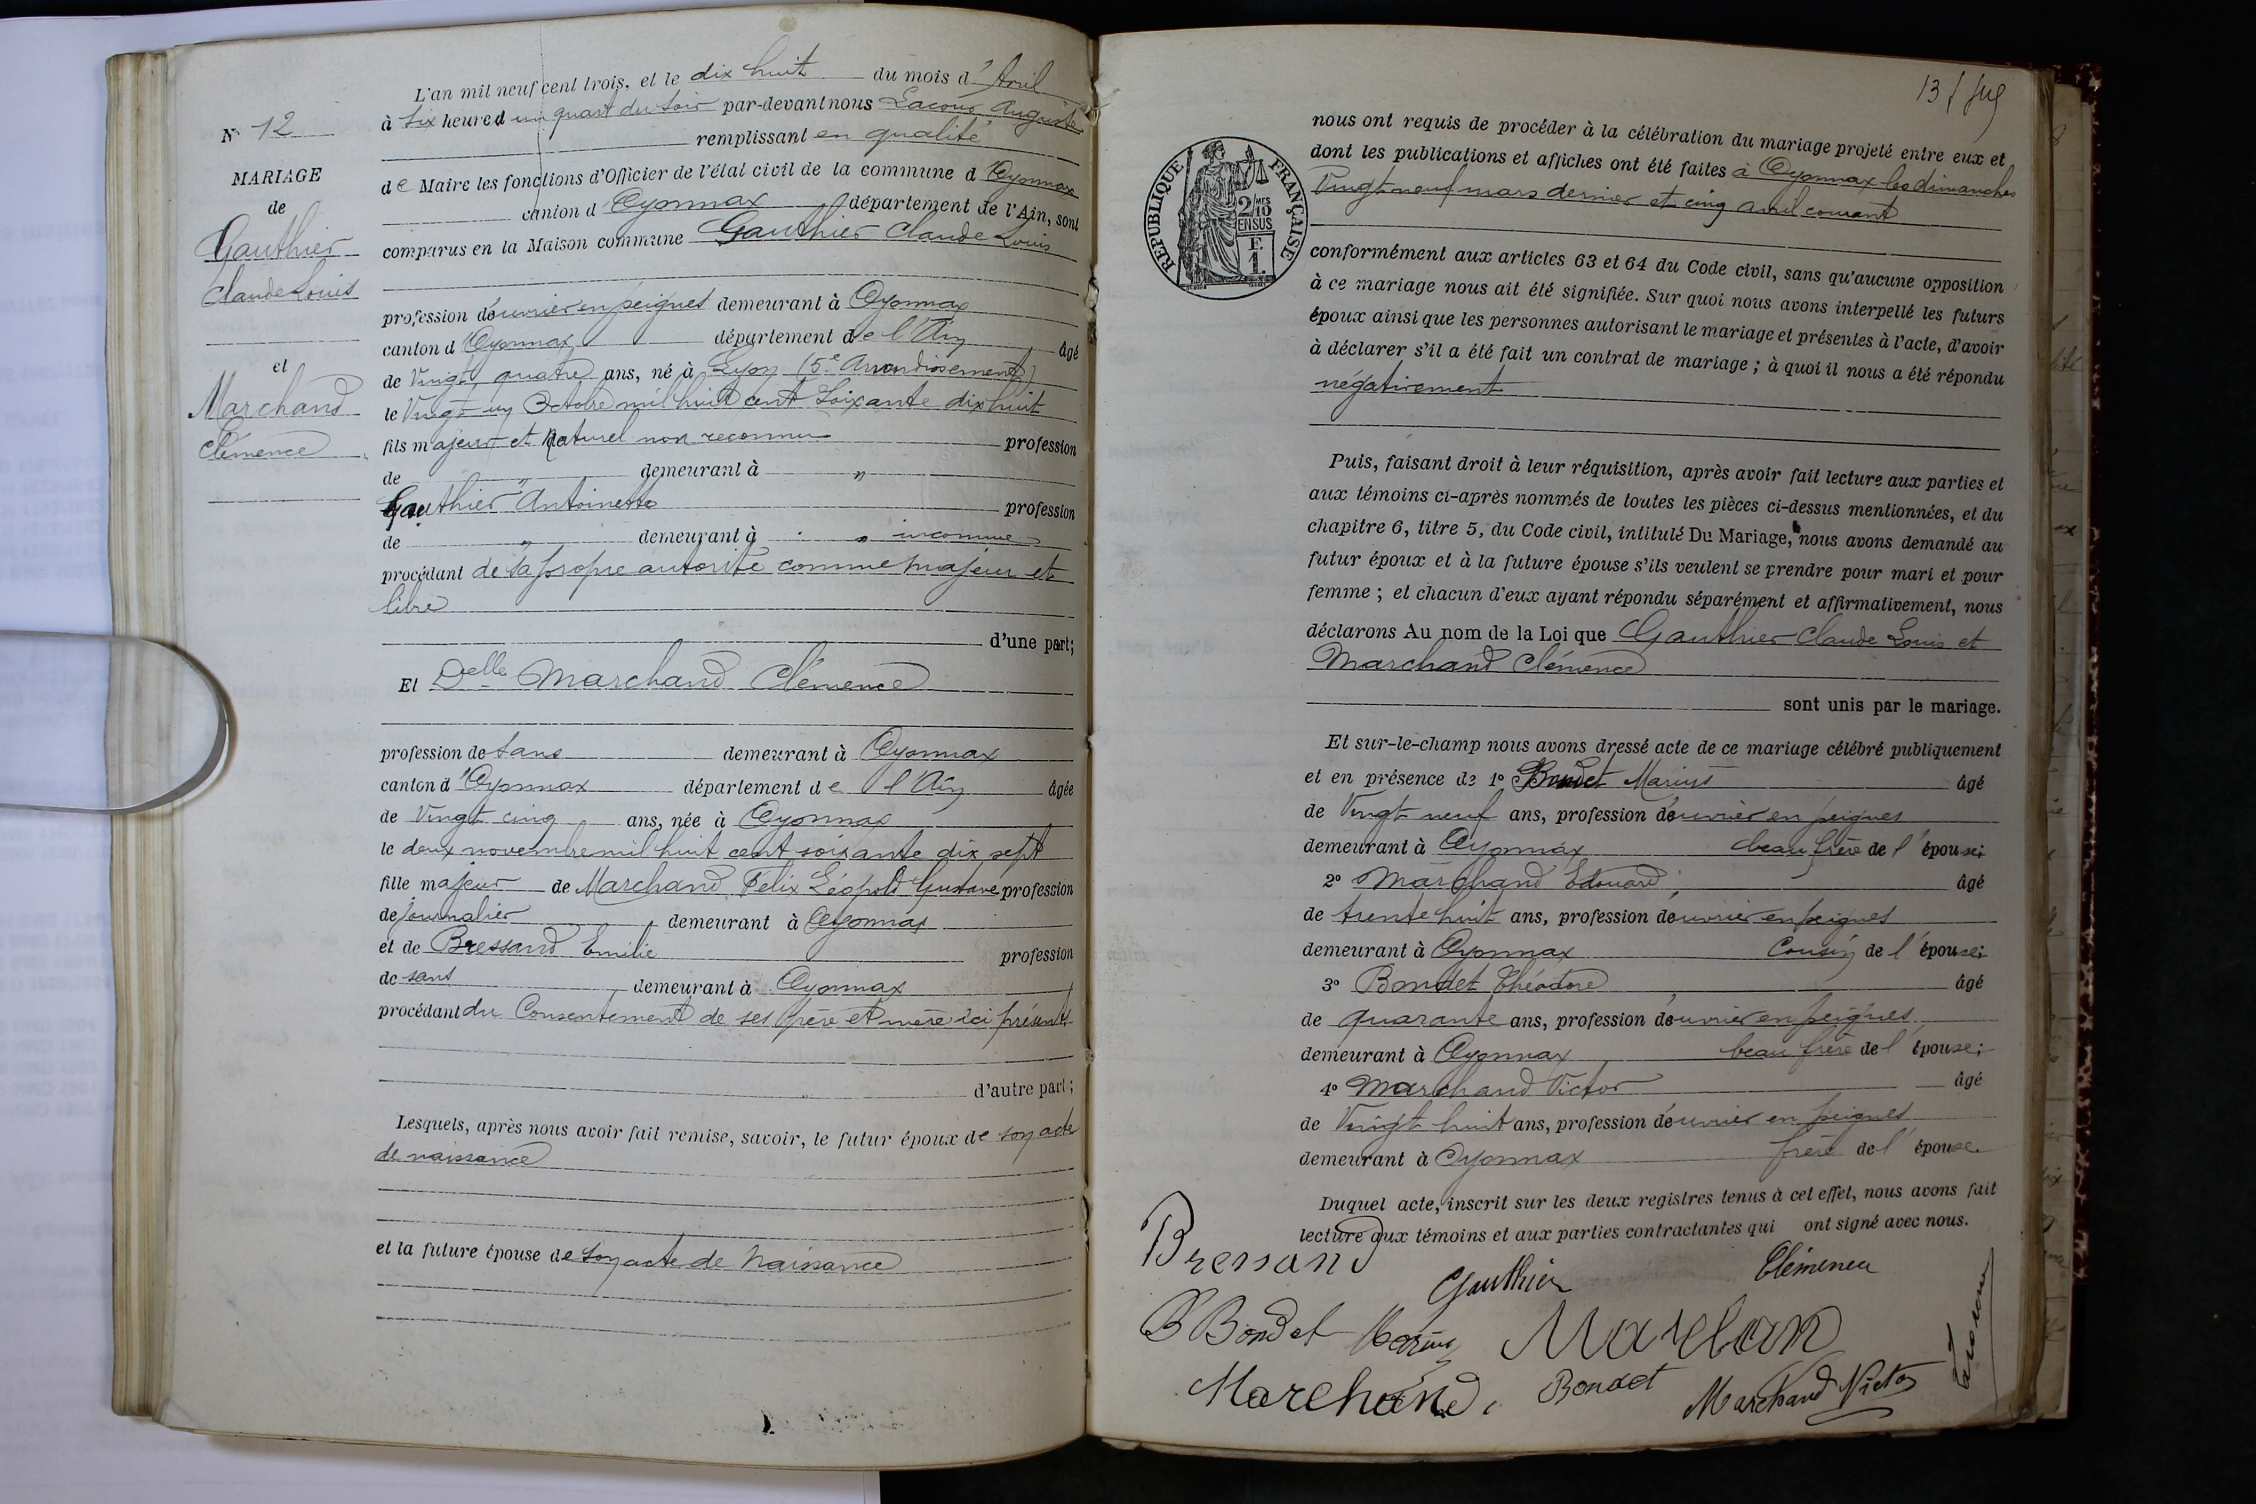 L'an mil neuf cent trois, et le dix huit du mois d' Avril
à six heures un quart du soir par-devant nous Lacour Auguste
remplissant en qualité
de Maire les fonctions d'Officier de l'état civil de la commune d'Oyonnax
canton d'Oyonnax département de l'Ain, sont
comparus en la Maison commune Gauthier Claude Louis
profession d'ouvrier en peignes demeurant à Oyonnax
canton d Oyonnax département de l'Ain âgé
de Vingt quatre ans, né à Lyon (5e Arrondissement)
le Vingt un Octobre mil huit cent soixante dix huit
fils majeur et Naturel non reconnu profession
de " demeurant à "
Gauthier Antoinette profession
de " demeurant à " inconnue
procédant de sa propre autorité comme majeur et
libre
d'une part;
Et Delle Marchand Clémence
profession de sans demeurant à Oyonnax
canton d'Oyonnax département de l'Ain âgée
de Vingt cinq ans, née à Oyonnax
le deux novembre mil huit cent soixante dix sept
fille majeur de Marchand Felix Léopold Gustave profession
de journalier demeurant à Oyonnax
et de Bressand Emilie profession
de sans demeurant à Oyonnax
procédant du Consentement de ses père et mère ici présents
d'autre part;
Lesquels, après nous avoir fait remise, savoir, le futur époux de son acte
de naissance
et la future épouse de son acte de Naissance
N° 12
MARIAGE
de
Gauthier
Claude Louis
et
Marchand
Clémence
13
RÉPUBLIQUE FRANÇAISE
2/10 MES
EN SUS
F.
1.
nous ont requis de procéder à la célébration du mariage projeté entre eux et
dont les publications et affiches ont été faites à Oyonnax les dimanches
Vingt-neuf mars dernier et cinq avril courant
conformément aux articles 63 et 64 du Code civil, sans qu'aucune opposition
à ce mariage nous ait été signifiée. Sur quoi nous avons interpellé les futurs
époux ainsi que les personnes autorisant le mariage et présentes à l'acte, d'avoir
à déclarer s'il a été fait un contrat de mariage ; à quoi il nous a été répondu
négativement
Puis, faisant droit à leur réquisition, après avoir fait lecture aux parties et
aux témoins ci-après nommés de toutes les pièces ci-dessus mentionnées, et du
chapitre 6, titre 5, du Code civil, intitulé Du Mariage, nous avons demandé au
futur époux et à la future épouse s'ils veulent se prendre pour mari et pour
femme ; et chacun d'eux ayant répondu séparément et affirmativement, nous
déclarons Au nom de la Loi que Gauthier Claude Louis et
Marchand Clémence
sont unis par le mariage.
Et sur-le-champ nous avons dressé acte de ce mariage célébré publiquement
et en présence de 1° Bondet Marius âgé
de Vingt neuf ans, profession d'ouvrier en peignes
demeurant à Oyonnax beau frère de l'épouse;
2° Marchand Edouard, âgé
de trente huit ans, profession d'ouvrier en peignes
demeurant à Oyonnax Cousin de l'épouse;
3° Bondet Théodore âgé
de quarante ans, profession d'ouvrier en peignes
demeurant à Oyonnax beau frère de l'épouse;
4° Marchand Victor âgé
de Vingt huit ans, profession d'ouvrier en peignes
demeurant à Oyonnax frère de l'épouse.
Duquel acte, inscrit sur les deux registres tenus à cet effet, nous avons fait
lecture aux témoins et aux parties contractantes qui ont signé avec nous.
Bressand
Gauthier Clémence
Bondet Marius
Marchand, Bondet Marchand Victor
Lacour